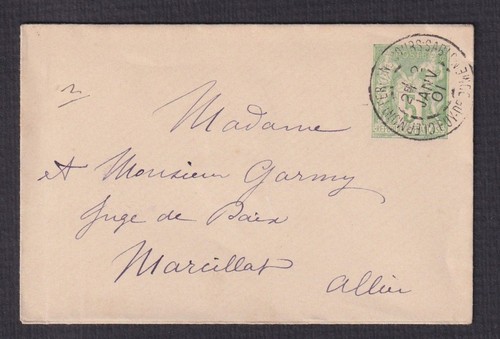 Madame
et Monsieur Garmy
Juge de Paix
Marcillat
Allier
CLERMONT-FERRAND
JANV
01